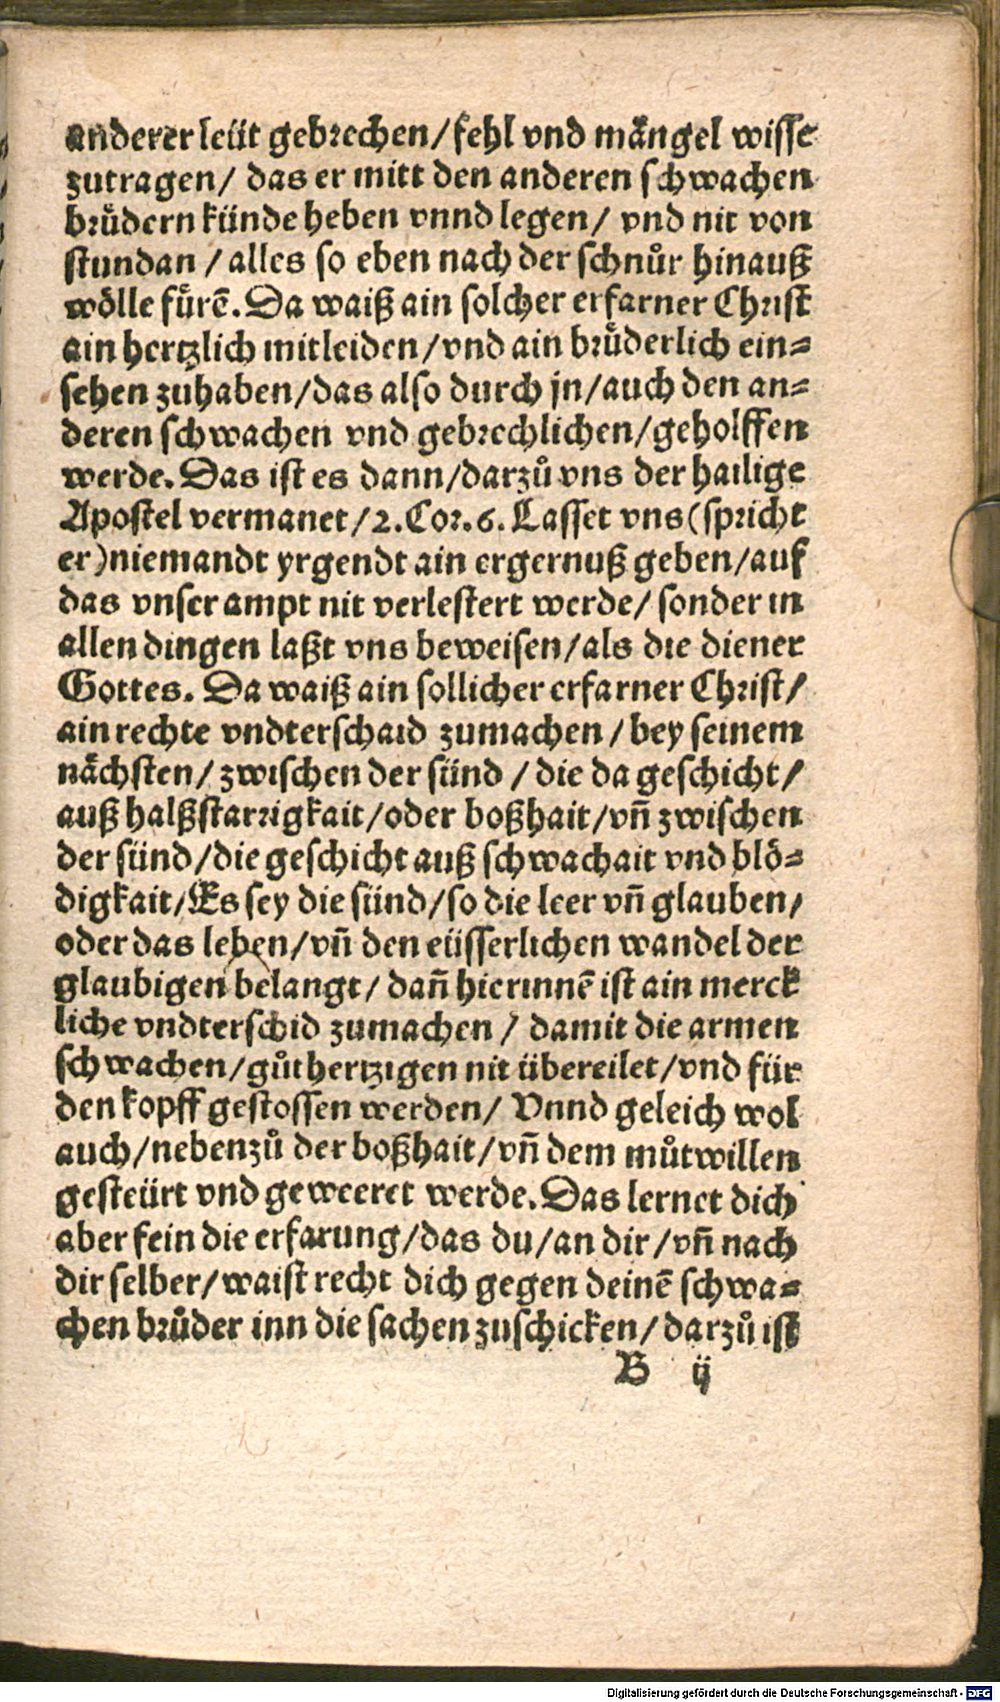 anderer leüt gebrechen/ fehl vnd mängel wisse
zutragen/ das er mitt den anderen schwachen
bruͤdern künde heben vnnd legen/ vnd nit von
stundan / alles so eben nach der schnuͦr hinauß
woͤlle fuͤrē. Da waiß ain solcher erfarner Christ
ain hertzlich mitleiden/ vnd ain bruͤderlich ein⸗
sehen zuhaben/ das also durch jn/ auch den an⸗
deren schwachen vnd gebrechlichen/ geholffen
werde. Das ist es dann/ darzuͦ vns der hailige
Apostel vermanet/ 2. Cor. 6. Lasset vns (spricht
er) niemandt yrgendt ain ergernuß geben/ auf
das vnser ampt nit verlestert werde/ sonder in
allen dingen laßt vns beweisen/ als die diener
Gottes. Da waiß ain sollicher erfarner Christ/
ain rechte vndterschaid zumachen / bey seinem
naͤchsten/ zwischen der sünd / die da geschicht/
auß halßstarrigkait/ oder boßhait/ vñ zwischen
der sünd/ die geschicht auß schwachait vnd bloͤ⸗
digkait/ Es sey die sünd/ so die leer vñ glauben/
oder das leben/ vñ den eüsserlichen wandel der
glaubigen belangt/ dañ hierinnē ist ain merck
liche vndterschid zumachen / damit die armen
schwachen/ guͦthertzigen nit übereilet/ vnd für
den kopff gestossen werden/ Vnnd geleich wol
auch/ nebenzuͦ der boßhait/ vñ dem muͦtwillen
gesteürt vnd geweeret werde. Das lernet dich
aber fein die erfarung/ das du/ an dir/ vñ nach
dir selber/ waist recht dich gegen deinē schwa⸗
chen bruͤder inn die sachen zuschicken/ darzuͦ ist
B ij
Digitalisierung gefördert durch die Deutsche Forschungsgemeinschaft - DFG